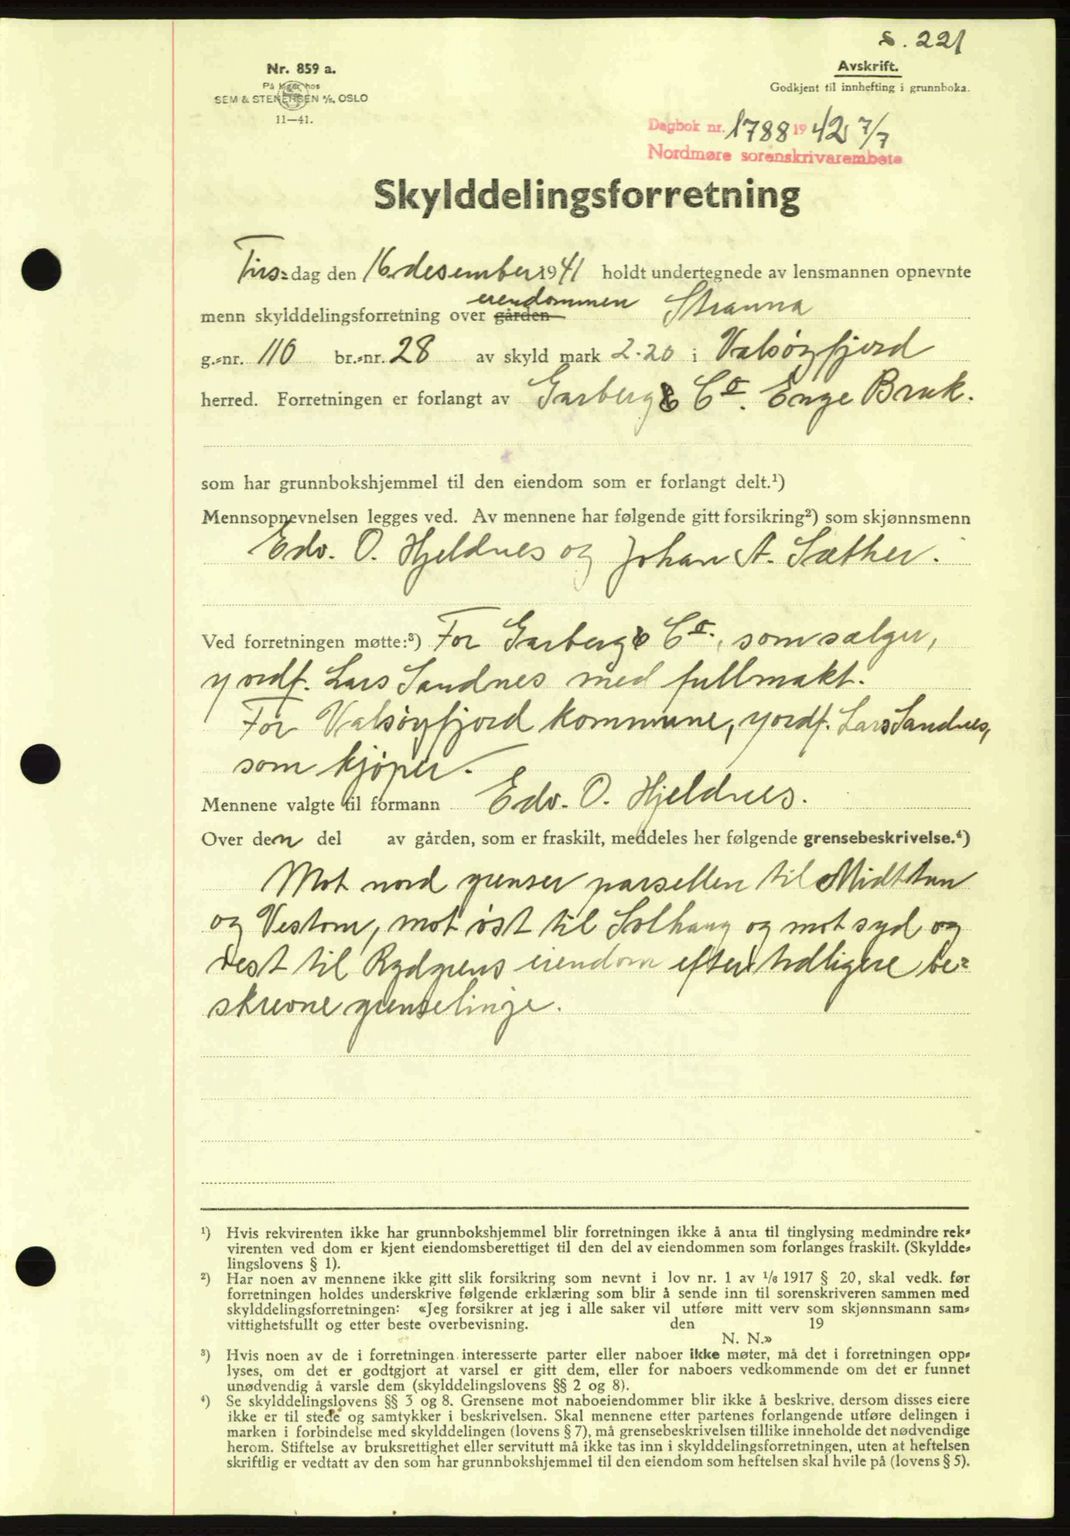 s. 221
Nr. 859 a.
På lager hos
SEM & STENERSEN A/S, OSLO
11—41.
Avskrift.
Godkjent til innhefting i grunnboka.
Dagbok nr. 1788 1942 7/7
Nordmøre sorenskrivarembete
Skylddelingsforretning
Tirs-dag den 16. desember 1941 holdt undertegnede av lensmannen opnevnte
eiendommen
menn skylddelingsforretning over gården Stranna
g.-nr. 110 br.-nr. 28 av skyld mark 2.20 i Valsøyfjord
herred. Forretningen er forlangt av Garberg & Co. Enge Bruk.
som har grunnbokshjemmel til den eiendom som er forlangt delt.¹)
Mennsopnevnelsen legges ved. Av mennene har følgende gitt forsikring²) som skjønnsmenn
Edv. O. Hjeldnes og Johan A. Sæther.
Ved forretningen møtte:³) For Garberg & Co., som sælger,
v ordf. Lars Sandnes med fullmakt.
For Valsøyfjord kommune, v ordf. Lars Sandnes,
som kjøper.
Mennene valgte til formann Edv. O. Hjeldnes.
Over den del av gården, som er fraskilt, meddeles her følgende grensebeskrivelse.⁴)
Mot nord grenser parsellen til Midttun
og Vestom, mot øst til Solhaug og mot syd og
vest til Rydgrens eiendom efter tidligere be-
skrevne grenselinje.
¹) Hvis rekvirenten ikke har grunnbokshjemmel blir forretningen ikke å anta til tinglysing medmindre rek-
virenten ved dom er kjent eiendomsberettiget til den del av eiendommen som forlanges fraskilt. (Skyldde-
lingslovens § 1).
²) Har noen av mennene ikke gitt slik forsikring som nevnt i lov nr. 1 av 1/6 1917 § 20, skal vedk. før
forretningen holdes underskrive følgende erklæring som blir å sende inn til sorenskriveren sammen med
skylddelingsforretningen: «Jeg forsikrer at jeg i alle saker vil utføre mitt verv som skjønnsmann sam-
vittighetsfullt og etter beste overbevisning. den 19
N. N.»
³) Hvis noen av de i forretningen interesserte parter eller naboer ikke møter, må det i forretningen opp-
lyses, om det er godtgjort at varsel er gitt dem, eller for naboers vedkommende om det er funnet
unødvendig å varsle dem (skylddelingslovens §§ 2 og 8).
⁴) Se skylddelingslovens §§ 3 og 8. Grensene mot naboeiendommer blir ikke å beskrive, dersom disses eiere
ikke er til stede og samtykker i beskrivelsen. Skal mennene etter partenes forlangende utføre delingen i
marken i forbindelse med skylddelingen (lovens § 7), må grensebeskrivelsen tillike inneholde det nødvendige
herom. Stiftelse av bruksrettighet eller servitutt må ikke tas inn i skylddelingsforretningen, uten at heftelsen
skriftlig er vedtatt av den som har grunnbokshjemmel til den eiendom som heftelsen skal hvile på (lovens § 5).